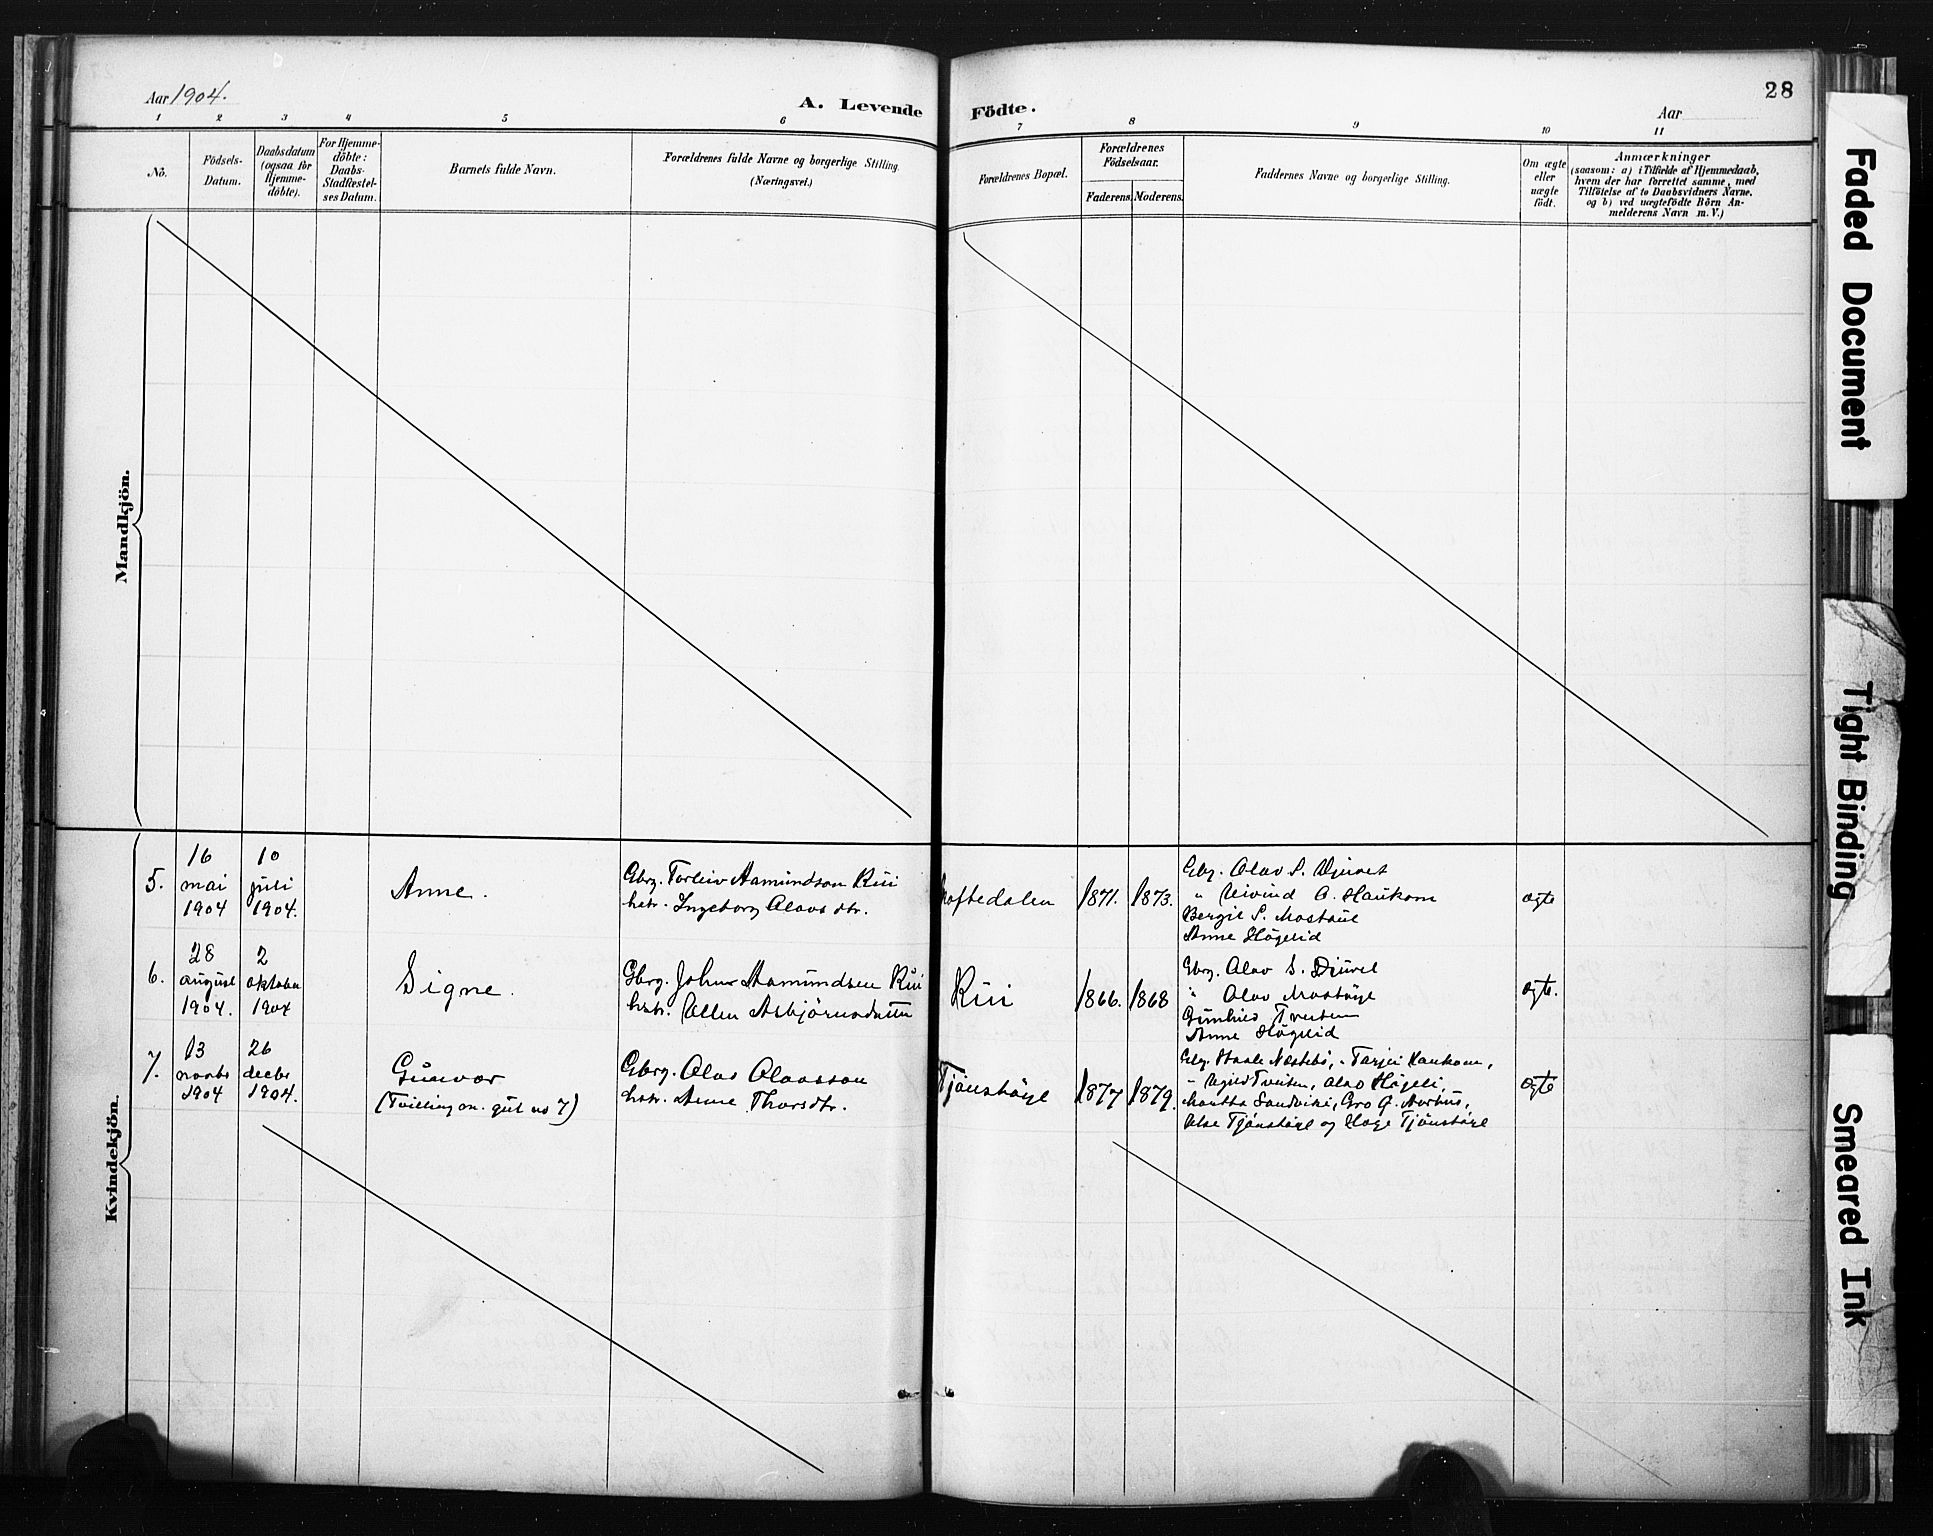 Aar 1904.
A. Levende Födte.
Aar
28
1 2 3 4 5 6 7 8 9 10 11
No.
Födsels-
Datum.
Daabsdatum
(ogsaa for
Hjemme-
döbte).
For Hjemme-
döbte:
Daabs-
Stadfæstel-
ses Datum.
Barnets fulde Navn.
Forældrenes fulde Navne og borgerlige Stilling.
(Næringsvei.)
Forældrenes Bopæl.
Forældrenes
Födselsaar.
Faderens. Moderens.
Faddernes Navne og borgerlige Stilling.
Om ægte
eller
uægte
födt.
Anmærkninger
(saasom: a) i Tilfælde af Hjemmedaab,
hvem der har forrettet samme, med
Tilföielse af to Daabsvidners Navne,
og b) ved uægtefödte Börn An-
melderens Navn m. V.)
Mandkjön.
Kvindekjön.
5.
16
mai
1904
10
juli
1904.
Anne.
Gbrg. Torleiv Aamundson Rui
hstr. Ingeborg Olavsdtr.
Haftedalen
1871. 1873.
Gbrg. Olav S. Djuvet
" Eivind O. Haukom
Bergit S. Mostaul
Anne Högelid
ægte
6.
28
august
1904.
2
oktober
1904
Signe.
Gbrg. John Aamundsen Rui
hstr. Asbjörnsdatter
Rui
1866. 1868
Gbrg. Olav S. Djuvet
" Olav Mostöyl
Gunhild Tveiten
Anne Högelid
ægte.
7.
13
novbr
1904
26
decbr
1904.
Gunvor
(Tvilling m. gut no 7)
Gbrg. Olav Olavsson
hstr. Anne Thorsdtr.
Tjönstöyl
1877 1879.
Gbrg. Staale Næstebö, " Tarjei Haukom,
" Tveiten, Olav Högeli,
Martha Sandviki, Gro G. Aarhus,
Tjönstöyl og Hæge Tjönstöyl
ægte
Faded Document
Tight Binding
Smeared Ink